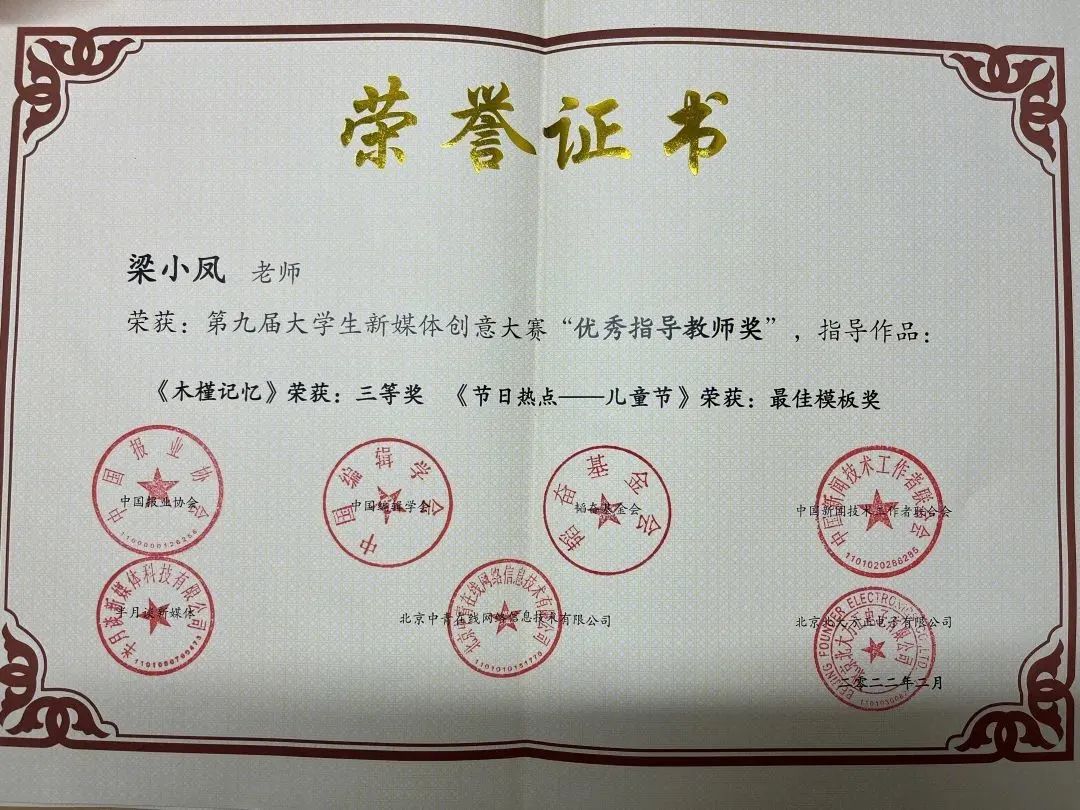 荣誉证书
梁小凤 老师
荣获：第九届大学生新媒体创意大赛“优秀指导教师奖”，指导作品：
《木槿记忆》荣获：三等奖 《节日热点——儿童节》荣获：最佳模板奖
中国报业协会
中国报业协会
1100000126266
中国编辑学会
中国编辑学会
韬奋基金会
韬奋基金会
中国新闻技术工作者联合会
中国新闻技术工作者联合会
1101020288285
半月谈新媒体科技有限公司
半月谈新媒体
北京中青在线网络信息技术有限公司
北京中青在线网络信息技术有限公司
1101010151770
BEIJING FOUNDER ELECTRONICS CO.,LTD
北京北大方正电子有限公司
北京北大方正电子有限公司
二零二二年二月